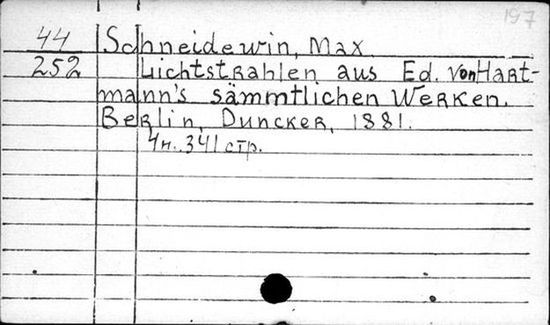 197
44 Schneidewin, Max.
252 Lichtstrahlen aus Ed. von Hart-
mann's sämmtlichen Werken.
Berlin, Duncker, 1881.
4н. 341 стр.